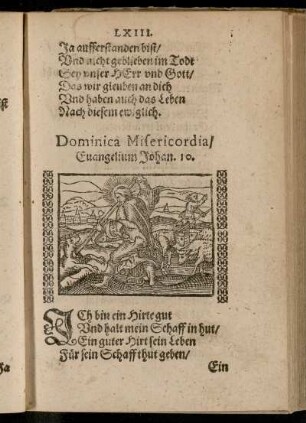 LXIII.
Ja aufferstanden bist/
Vnd nicht geblieben im Todt
Sey vnser HErr vnd Gott/
Das wir gleuben an dich
Vnd haben auch das Leben
Nach diesem ewiglich.
Dominica Misericordia/
Euangelium Johan. 10.
ICh bin ein Hirte gut
Vnd halt mein Schaff in hut/
Ein guter Hirt sein Leben
Für sein Schaff thut geben/
Ein